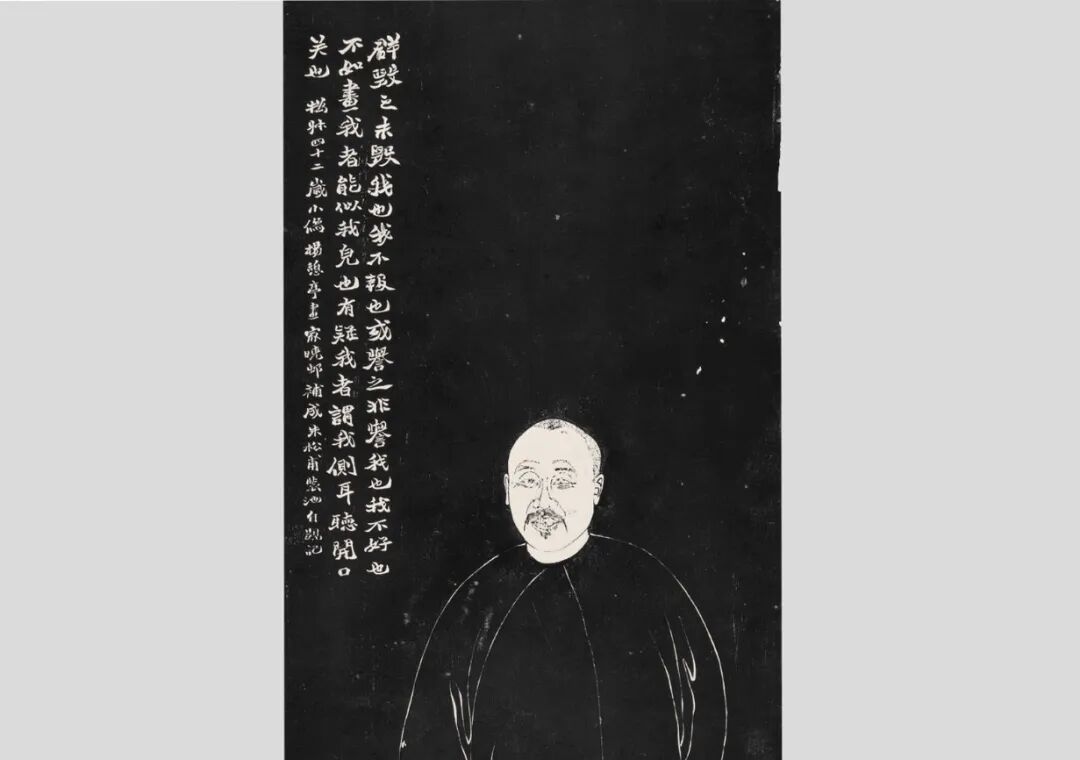 群毀之未毀我也我不報也或譽之非譽我也我不好也
不如畫我者能似我皃也有疑我者謂我側耳聽開口
笑也 撝叔四十二歲小像楊憩亭畫家曉邨補成朱松甫裝池 記